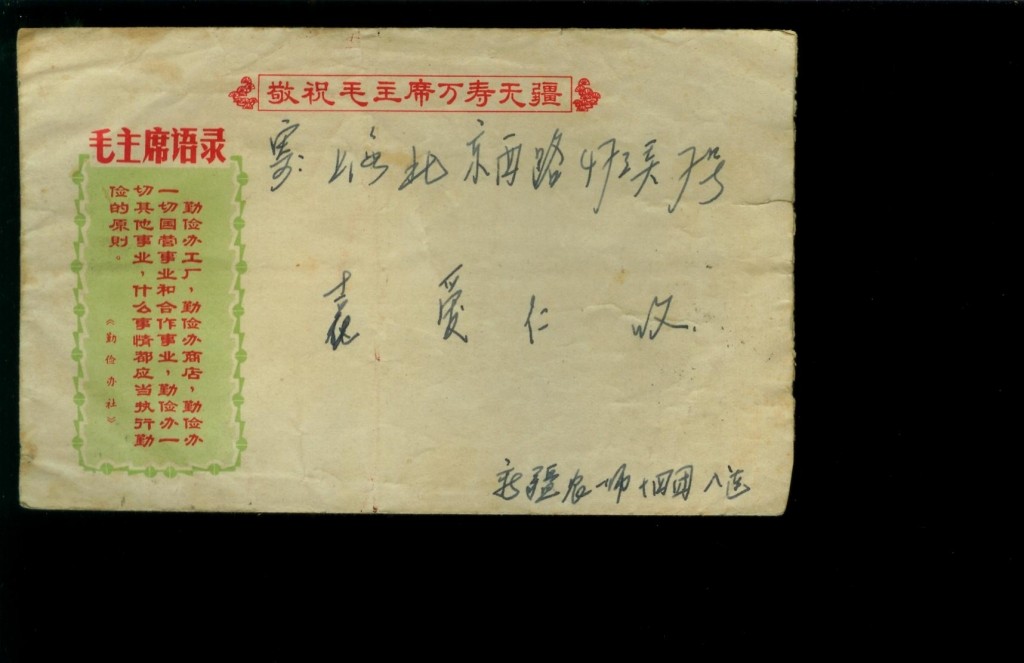 敬祝毛主席万寿无疆
毛主席语录
勤俭办工厂，勤俭办商店，勤俭办
一切国营事业和合作事业，勤俭办一
切其他事业，什么事情都应当执行勤
俭的原则。
《勤俭办社》
寄：上海北京西路
袁爱仁 收
新疆农一师十四团八连